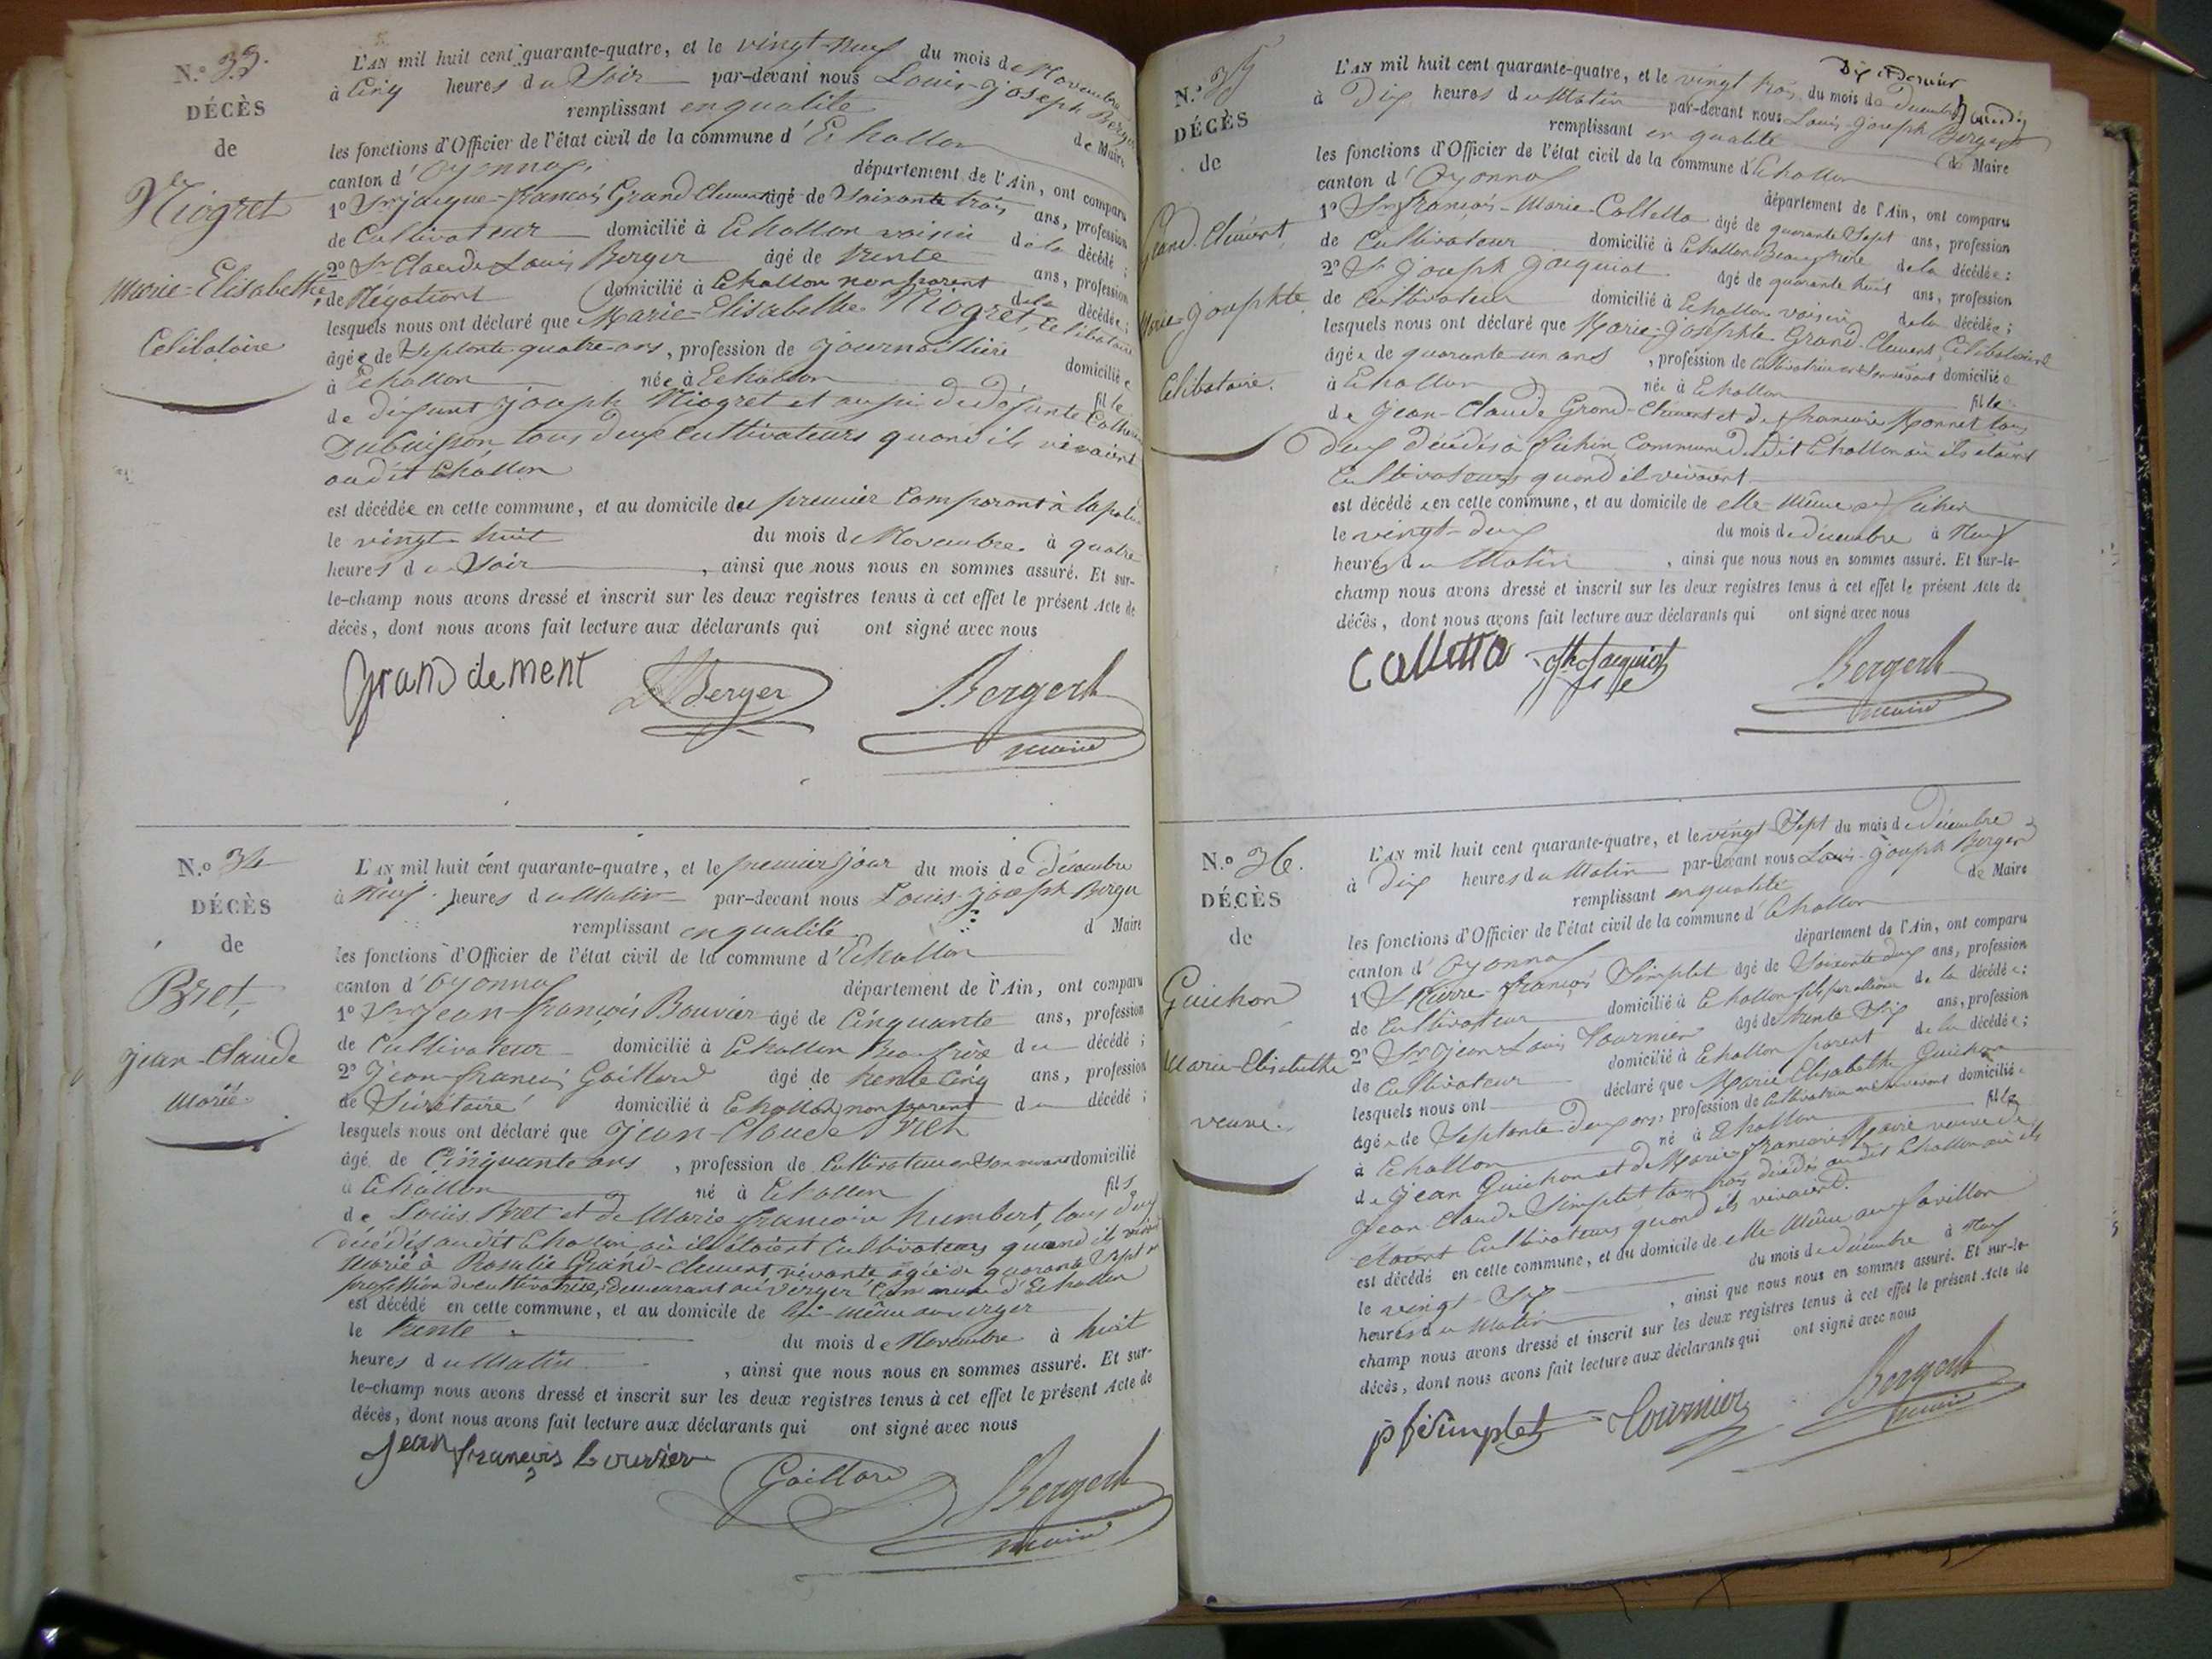 N.º 33.
DÉCÈS
de
Niogret
Marie-Elisabethe
Celibataire
L'AN mil huit cent quarante-quatre, et le vingt-neuf du mois de Novembre
à Cinq heures du Soir par-devant nous Louis-Joseph Berger
remplissant en qualité de Maire
les fonctions d'Officier de l'état civil de la commune d'Echallon
canton d'Oyonnax département de l'Ain, ont comparu
1º Sr Jacque-francois Grand Clement âgé de Soixante trois ans, profession
de Cultivateur domicilié à Echallon voisin de la décédé;
2º Sr Claude Louis Berger âgé de trente ans, profession
de Négotiant domicilié à Echallon non parent de la décédée;
lesquels nous ont déclaré que Marie-Elisabethe Niogret, Celibataire
âgée de Septante quatre ans, profession de journaillière domiciliée
à Echallon née à Echallon fille
de défunt Joseph Niogret et aussi de défunte Catherine
Dubuisson tous deux Cultivateurs quand ils vivaient
audit Echallon
est décédée en cette commune, et au domicile du premier Comparant à
le vingt huit du mois de Novembre à quatre
heures du Soir, ainsi que nous nous en sommes assuré. Et sur-
le-champ nous avons dressé et inscrit sur les deux registres tenus à cet effet le présent Acte de
décès, dont nous avons fait lecture aux déclarants qui ont signé avec nous
grand clement Berger Berger
maire
N.º 34
DÉCÈS
de
Bret,
Jean-Claude
Marié
L'AN mil huit cent quarante-quatre, et le premier jour du mois de Décembre
à Neuf heures du Matin par-devant nous Louis-Joseph Berger
remplissant en qualité d Maire
les fonctions d'Officier de l'état civil de la commune d'Echallon
canton d'Oyonnax département de l'Ain, ont comparu
1º Sr Jean-François Bouvier âgé de Cinquante ans, profession
de Cultivateur domicilié à Echallon Beau frère du décédé;
2º Jean-francois Gaillard âgé de trente Cinq ans, profession
de Sécrétaire domicilié à Echallon, non parent du décédé;
lesquels nous ont déclaré que Jean-Claude Bret
âgé de Cinquante ans, profession de Cultivateur en Son vivant domicilié
à Echallon né à Echallon fils
de Louis Bret et de Marie francoise humbert, tous deux
décédés audit Echallon où ils étaient Cultivateurs quand ils vivaient
Marié à Rosalie Grand-Clement, vivante âgée de quarante Sept ans
profession de cultivatrice, demeurant au Verger Commune d'Echallon
est décédé en cette commune, et au domicile de lui-même au verger
le trente du mois de Novembre à huit
heures du Matin, ainsi que nous nous en sommes assuré. Et sur-
le-champ nous avons dressé et inscrit sur les deux registres tenus à cet effet le présent Acte de
décès, dont nous avons fait lecture aux déclarants qui ont signé avec nous
jean françois bouvier Gaillard Berger
maire
N.º 35
DÉCÈS
de
Grand-Clément
Marie-Josephte
Celibataire.
L'AN mil huit cent quarante-quatre, et le vingt trois du mois de Decembre
à Dix heures du Matin par-devant nous Louis-Joseph Berger
remplissant en qualité de Maire
les fonctions d'Officier de l'état civil de la commune d'Echallon
canton d'Oyonnax département de l'Ain, ont comparu
1º Sr francois-Marie Colletta âgé de quarante Sept ans, profession
de Cultivateur domicilié à Echallon Beau frère de la décédée:
2º Sr Joseph Jacquiot âgé de quarante huit ans, profession
de Cultivateur domicilié à Echallon voisin de la décédée;
lesquels nous ont déclaré que Marie-Josephte Grand-Clement, Celibataire
âgée de quarante un ans, profession de Cultivatrice en Son vivant domiciliée
à Echallon née à Echallon fille
de Jean-Claude Grand-Clement et de francoise Monnet tous
deux décédés à Commune dudit Echallon où ils étaient
Cultivateurs quand il vivaient
est décédée en cette commune, et au domicile de elle-même
le vingt-deux du mois de décembre à Neuf
heures du Matin, ainsi que nous nous en sommes assuré. Et sur-le-
champ nous avons dressé et inscrit sur les deux registres tenus à cet effet le présent Acte de
décès, dont nous avons fait lecture aux déclarants qui ont signé avec nous
Colletta Jph Jacquiot Berger
maire
N.º 36.
DÉCÈS
de
Guichon
Marie-Elisabethe
veuve.
L'AN mil huit cent quarante-quatre, et le vingt-Sept du mois de décembre
à Dix heures du Matin par-devant nous Louis-Joseph Berger
remplissant en qualité de Maire
les fonctions d'Officier de l'état civil de la commune d'Echallon
canton d'Oyonnax département de l'Ain, ont comparu
1º Sr Pierre-francois Simplet âgé de Soixante deux ans, profession
de Cultivateur domicilié à Echallon de la décédée;
2º Sr Jean-Louis Tournier âgé de trente Six ans, profession
de Cultivateur domicilié à Echallon parent de la décédée;
lesquels nous ont déclaré que Marie Elisabethe Guichon
âgée de Septante deux ans, profession de Cultivatrice en Son vivant domiciliée
à Echallon né à Echallon fille
de Jean Guichon et de Marie-francoise Maire veuve de
Jean-Claude Simplet tous trois décédés audit Echallon où ils
étaient Cultivateurs quand ils vivaient.
est décédé en cette commune, et au domicile de elle-Même au favillon
le vingt-Six du mois de décembre à Neuf
heures du Matin, ainsi que nous nous en sommes assuré. Et sur-le-
champ nous avons dressé et inscrit sur les deux registres tenus à cet effet le présent Acte de
décès, dont nous avons fait lecture aux déclarants qui ont signé avec nous
pf simplet Tournier Berger
maire